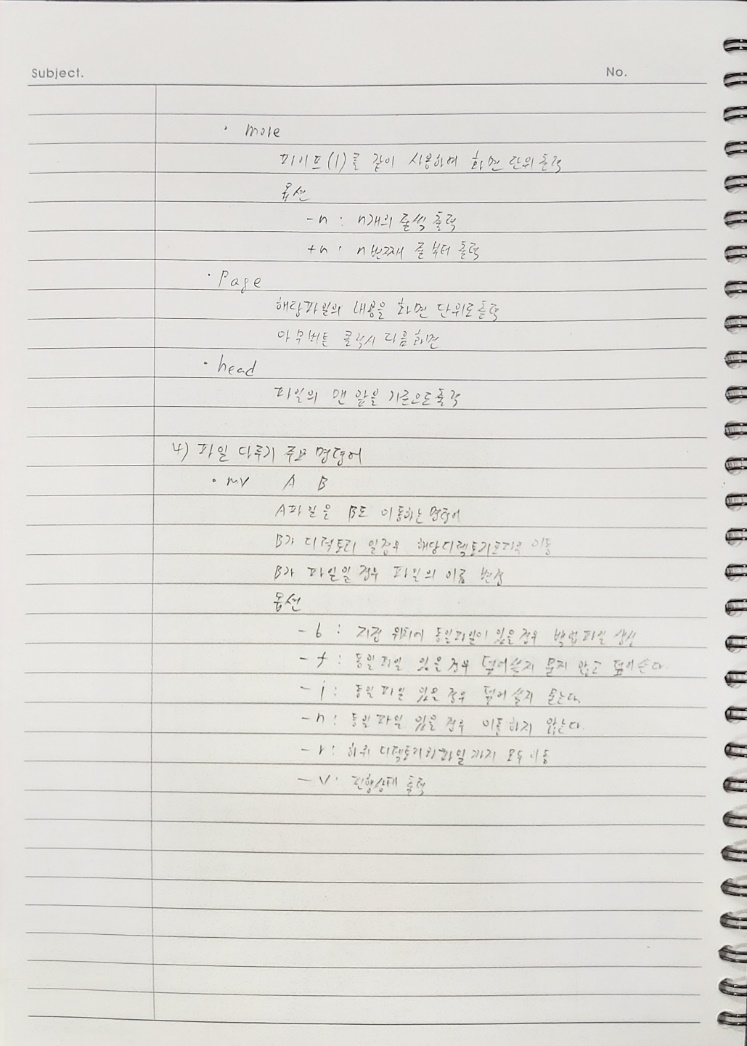 Subject.
No.
· more
파이프(|)를 같이 사용하여 화면 단위 출력
옵션
-n : n개의 줄씩 출력
+n : n번째 줄부터 출력
· Page
해당파일의 내용을 화면 단위로 출력
아무버튼 클릭시 다음화면
· head
파일의 맨 앞을 기준으로 출력
4) 파일 다루기 주요 명령어
· mv A B
A파일을 B로 이동하는 명령어
B가 디렉토리 일경우 해당디렉토리로 이동
B가 파일일 경우 파일의 이름 변경
옵션
-b : 지정 위치에 동일파일이 있을 경우 백업 파일 생성
-f : 동일파일 있을 경우 덮어쓸지 묻지 않고 덮어쓴다.
-i : 동일 파일 있을 경우 덮어 쓸지 묻는다.
-n : 동일 파일 있을 경우 이동하지 않는다.
-r : 하위 디렉토리와 파일까지 모두 이동
-v : 진행상태 출력